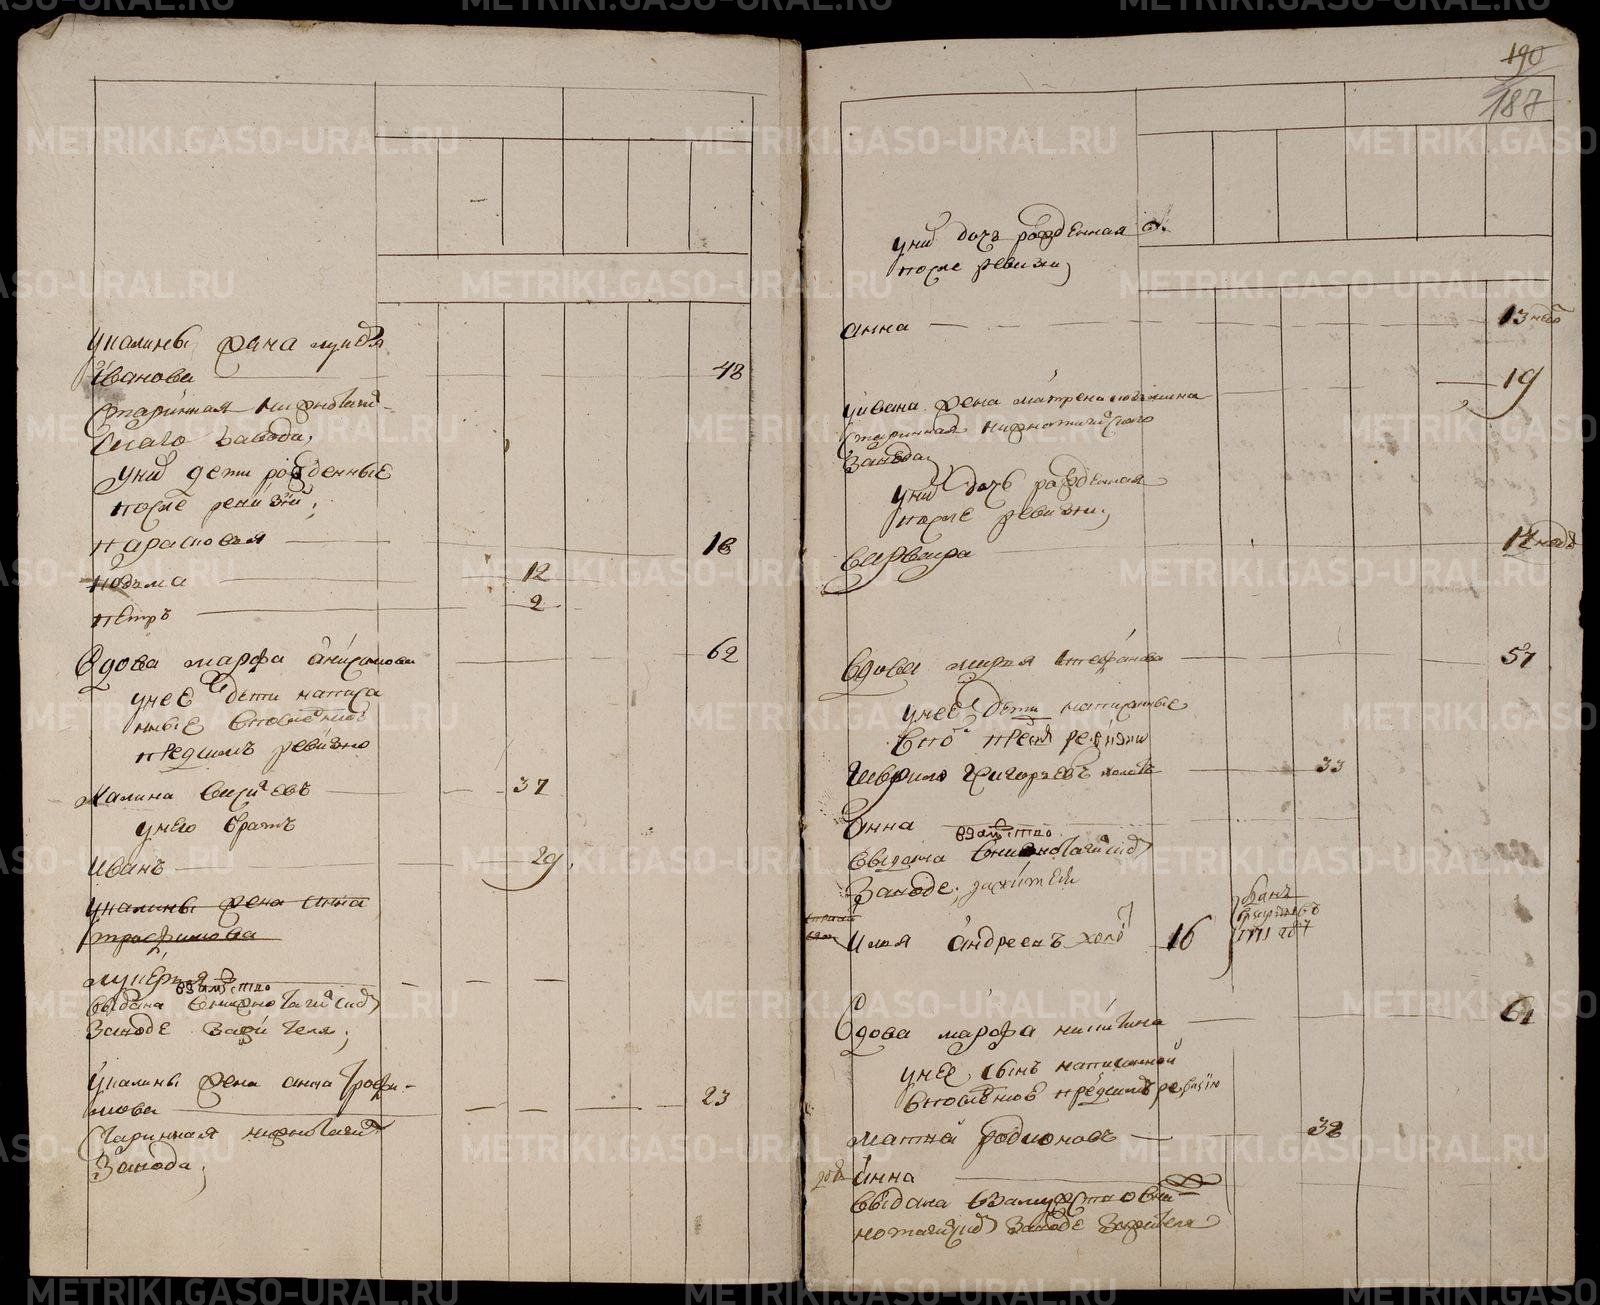 укалины жена лукея
Иванова 48
Старинная нижнотагил-
скаго завода,
у них дети рожденные
после ревизии,
парасковья 16
козма 12
петръ 2
Вдова марфа анисимова 62
у нее дети написа
нные в последнюю
пред симъ ревизию
Калина 37
у него братъ
Иванъ 29
укалины жена анна
трофимова
лукерья
взамуство
выдана в нижнотагилском
заводе за жителя,
укалины жена анна трофи-
мова 23
Старинная нижнотагилского
завода,
190
187
у них дочь рожденная
после ревизии,
анна 13 недель
у ивана жена матрена 19
старинная нижнотагилского
завода,
у них дочь рожденная
после ревизии,
варвара 17 недель
Вдова марья степанова 51
у нее дети написанные
в пос пред ревизии
Гаврило григорьевъ 33
Анна
взамуство
выдана в нижнотагилском
заводе, за жителя
Илья андреевъ 16
Вдова марфа никитина 61
у нее сынъ написанной
в последнюю пред симъ ревизию
матвей родионовъ 38
Анна
выдана в замужство в ниж
нотагилском заводе за жителя
METRIKI.GASO-URAL.RU